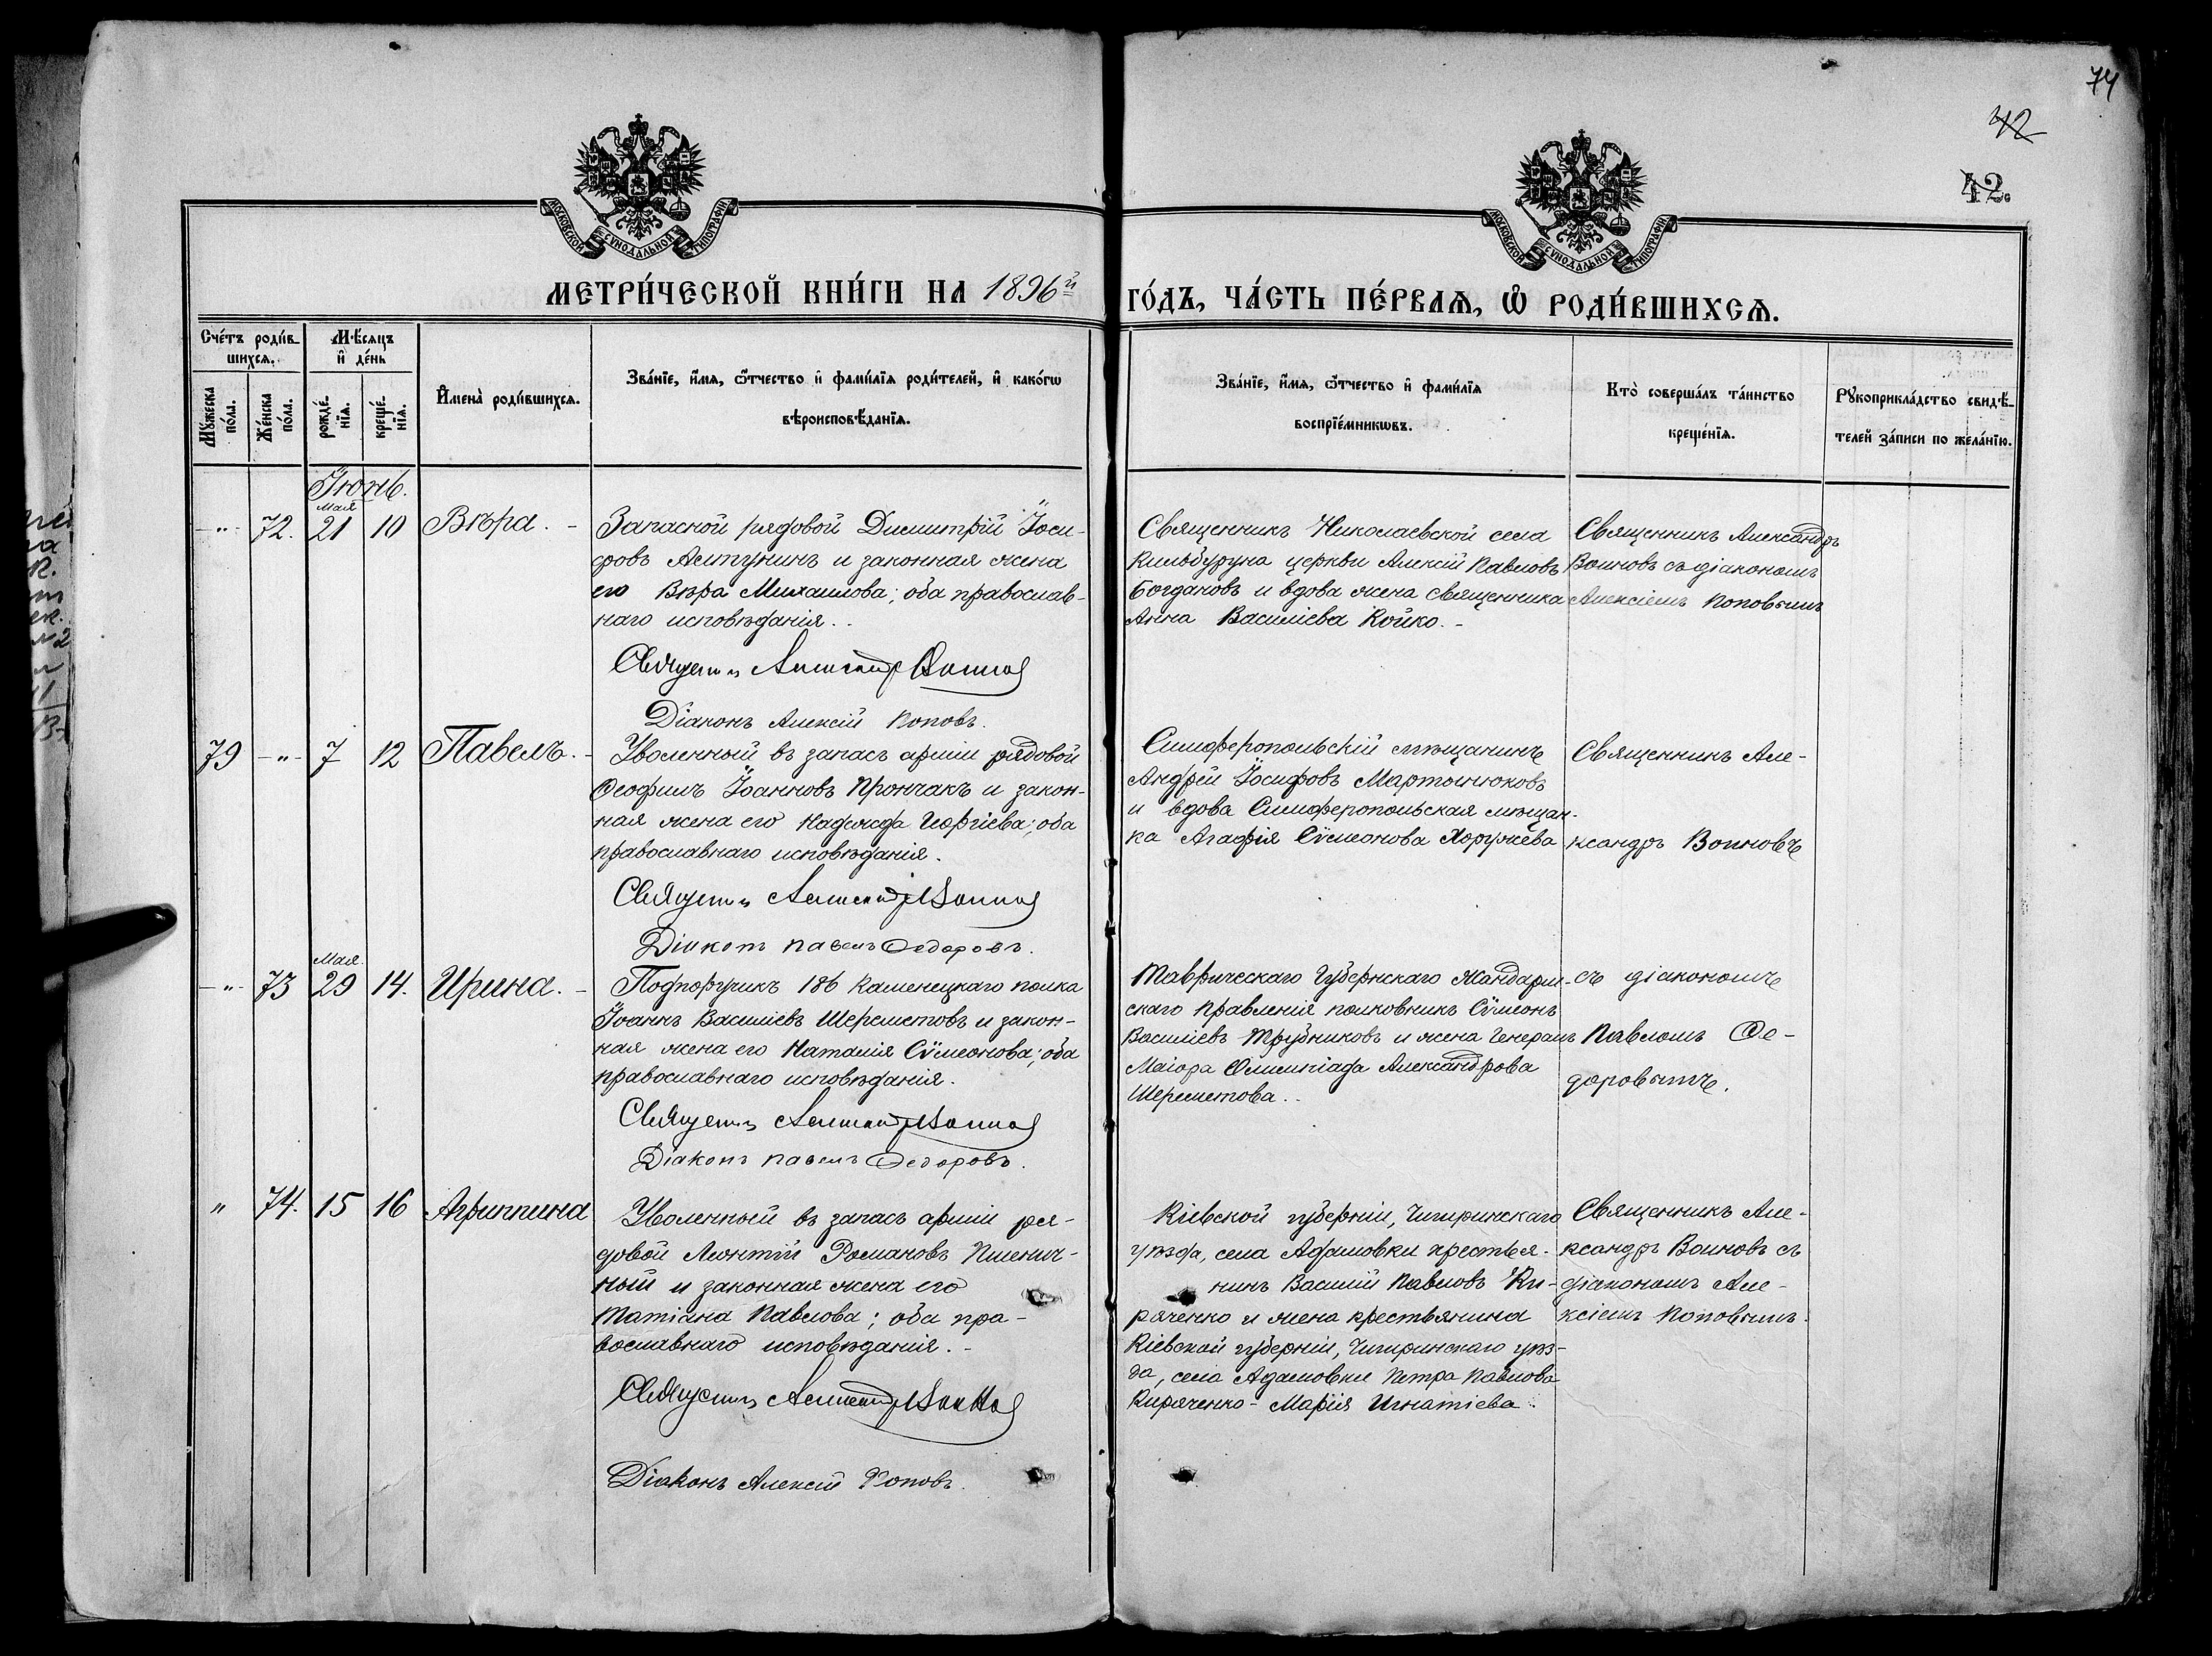 74
42
42.
МОСКОВСКОЙ СѴНОДАЛЬНОЙ ТИПОГРАФІИ
МОСКОВСКОЙ СѴНОДАЛЬНОЙ ТИПОГРАФІИ
МЕТРИ́ЧЕСКОЙ КНИ́ГИ НА 1896й
ГО́ДЪ, ЧА́СТЬ ПЕ́РВАѦ, Ѡ҆ РОДИ́ВШИХСѦ.
Сче́тъ роди́в-
шихсѧ.
Мѣ́сяцъ
и҆ де́нь
Мꙋ́жеска по́ла.
Же́нска по́ла.
рожде́-
нїѧ.
креще́-
нїѧ.
И҆мена̀ роди́вшихсѧ.
Зва́нїе, и҆́мѧ, ѻ҆́тчество и҆ фами́лїѧ роди́телей, и҆ како́гѡ
вѣроисповѣ́данїѧ.
Зва́нїе, и҆́мѧ, ѻ҆́тчество и҆ фами́лїѧ
воспрїе́мникѡвъ.
Кто̀ соверша́лъ та́инство
креще́нїѧ.
Рꙋкоприкла́дство свидѣ́-
телей за́писи по жела́нїю.
Іюнь.
Мая
-"- 72. 21 10 Вѣра. -
Запасной рядовой Димитрій Іоси-
фовъ Алтунинъ и законная жена
его Вѣра Михаилова; оба православ-
наго исповѣданія. -
Священникъ Александръ Воиновъ
Діаконъ Алексій Поповъ.
Священникъ Николаевской села
Кильбуруна церкви Алексій Павловъ
Богдановъ и вдова жена священника
Анна Василіева Койко. -
Священникъ Александръ
Воиновъ съ діакономъ
Алексіемъ Поповымъ
79 -"- 7 12 Павелъ. -
Уволенный въ запасъ арміи рядовой
Ѳеофилъ Іоанновъ Прончакъ и закон-
ная жена его Надежда Георгіева; оба
православнаго исповѣданія.
Священникъ Александръ Воиновъ
Діаконъ Павелъ Ѳедоровъ.
Симферопольскій мѣщанинъ
Андрей Іосифовъ Мартынюковъ
и вдова Симферопольская мѣщан-
ка Агафія Сѵмеонова Хоружева
Священникъ Але-
ксандръ Воиновъ
Мая
-"- 73 29 14. Ирина. -
Подпоручикъ 186 Каменецкаго полка
Іоаннъ Василіевъ Шереметовъ и закон-
ная жена его Наталія Сѵмеонова; оба
православнаго исповѣданія.
Священникъ Александръ Воиновъ
Діаконъ Павелъ Ѳедоровъ.
Таврическаго Губернскаго Жандарм-
скаго Правленія полковникъ Сѵмеонъ
Василіевъ Трубниковъ и жена Генералъ
Маіора Олимпіада Александрова
Шереметова. -
съ діакономъ
Павломъ Ѳе-
доровымъ.
" 74. 15 16 Агриппина
Уволенный въ запасъ арміи ря-
довой Леонтій Романовъ Пшенич-
ный и законная жена его
Татіана Павлова; оба пра-
вославнаго исповѣданія. -
Священникъ Александръ Воиновъ
Діаконъ Алексій Поповъ.
Кіевской губерніи, Чигиринскаго
уѣзда, села Адамовки крестья-
нинъ Василій Павловъ Ки-
ряченко и жена крестьянина
Кіевской губерніи, Чигиринскаго уѣз-
да, села Адамовки Петра Павлова
Киряченко - Марія Игнатіева.
Священникъ Але-
ксандръ Воиновъ съ
діакономъ Але-
ксіемъ Поповымъ.